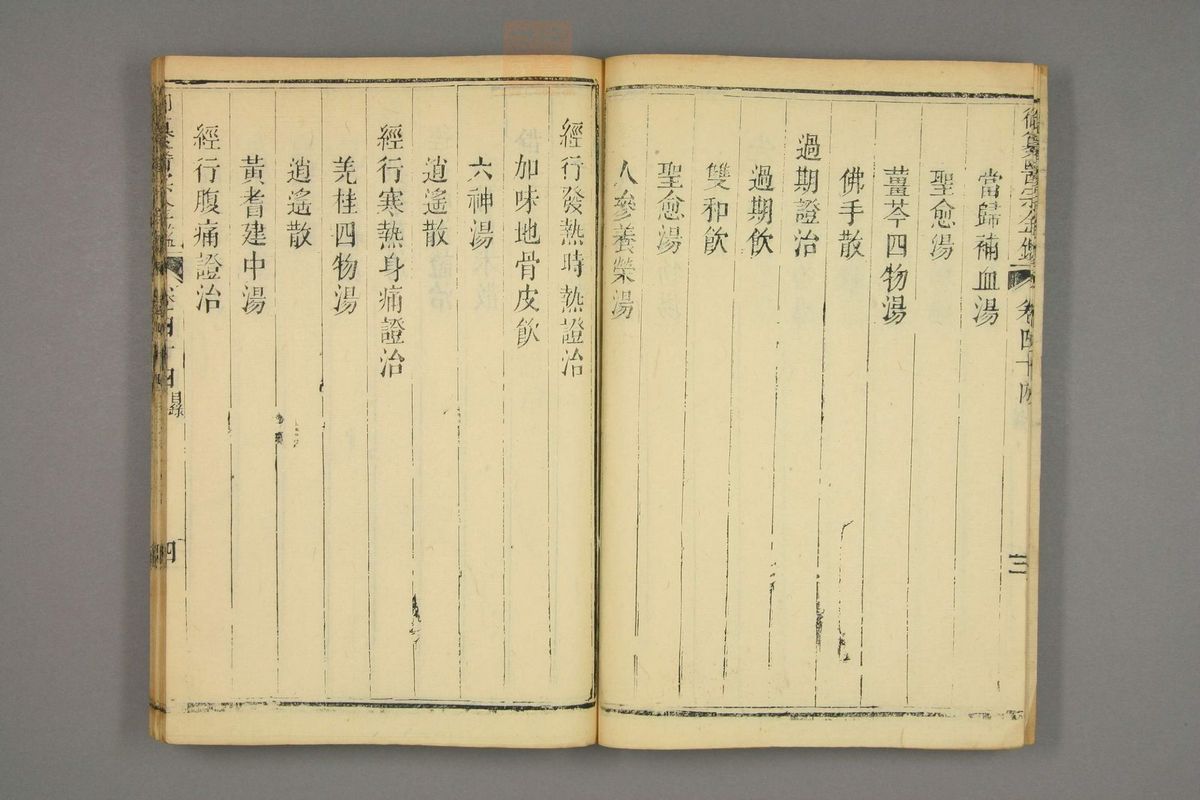 御纂醫宗金鑑 卷四十四 三
當歸補血湯
聖愈湯
薑芩四物湯
佛手散
過期證治
過期飲
雙和飲
聖愈湯
人參養榮湯
經行發熱時熱證治
加味地骨皮飲
六神湯
逍遙散
經行寒熱身痛證治
羌桂四物湯
逍遙散
黃耆建中湯
經行腹痛證治
卷四十四 目錄 四